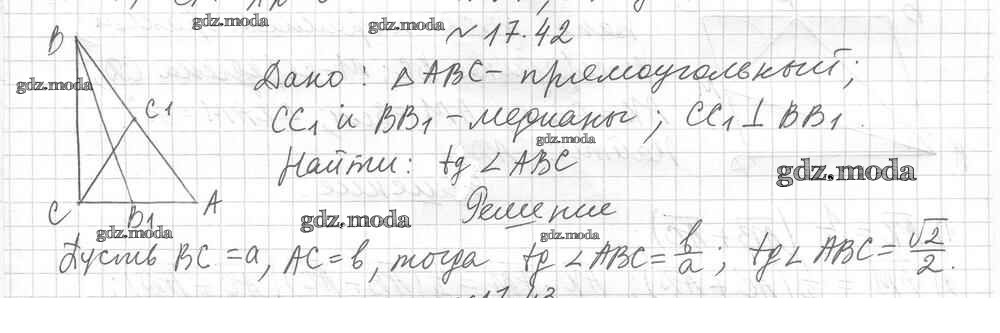 gdz.moda
gdz.moda
№ 17.42
B
gdz.moda
Дано: △ABC - прямоугольный;
C1
CC₁ и BB₁ - медианы; CC₁ ⊥ BB₁.
gdz.moda
Найти: tg ∠ABC
gdz.moda
C
B1
A
gdz.moda
Решение
gdz.moda
gdz.moda
Пусть BC = a, AC = b, тогда tg ∠ABC = b/a; tg ∠ABC = √2/2.